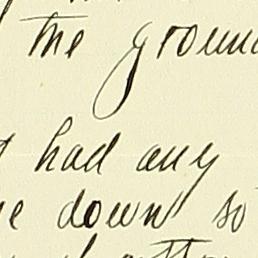 the groun
had any
down so